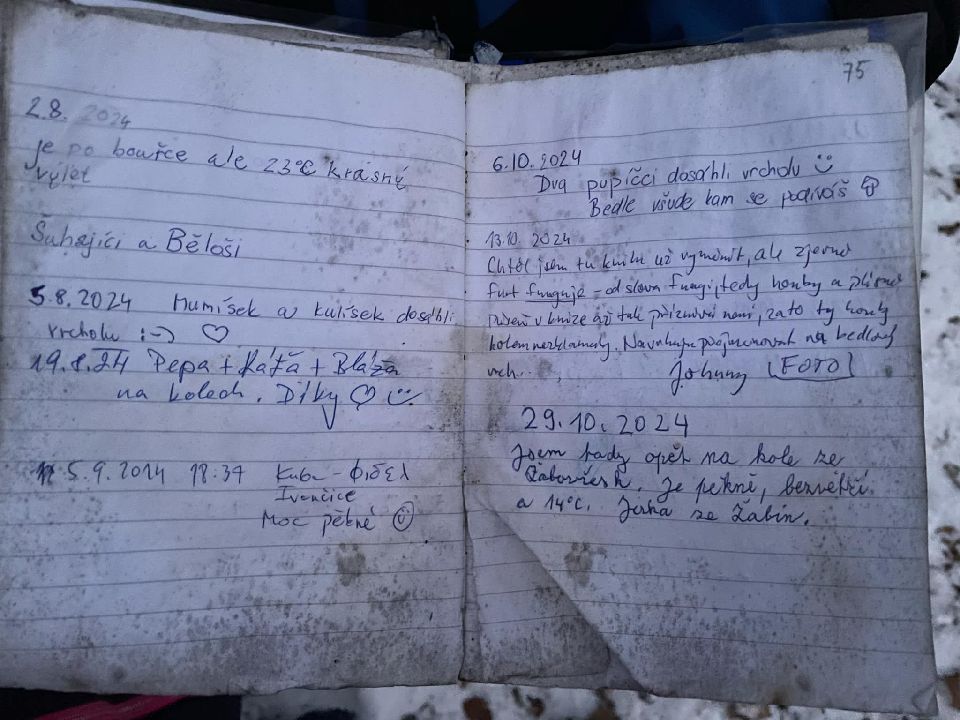 2.8. 2024
je po bouřce ale 23°C krásný
výlet
Šuhajíci a Běloši
5.8.2024 Mumíšek a kulíšek dosáhli
vrcholu :-) ♡
19.8.24 Pepa + Káťa + Bláža
na kolech. Díky ♡
5.9.2024 18:37 Kuba -
Ivančice
Moc pěkné ☺
75
6.10.2024
Dva pupíčci dosáhli vrcholu
Bedle všude kam se podíváš
13.10. 2024
Chtěl jsem tu knihu už vyměnit, ale zjevně
furt funguje - od slova fungi, tedy houby a plísně
v knize až tak příznivé není, zato ty houby
kolem nezklamaly. Navrhuju přejmenovat na bedlový
vrch...
Johnny FOTO
29.10.2024
Jsem tady opět na kole ze
Žabovřesk. Je pěkně, bezvětří
a 14°C. Jirka ze Žabin.